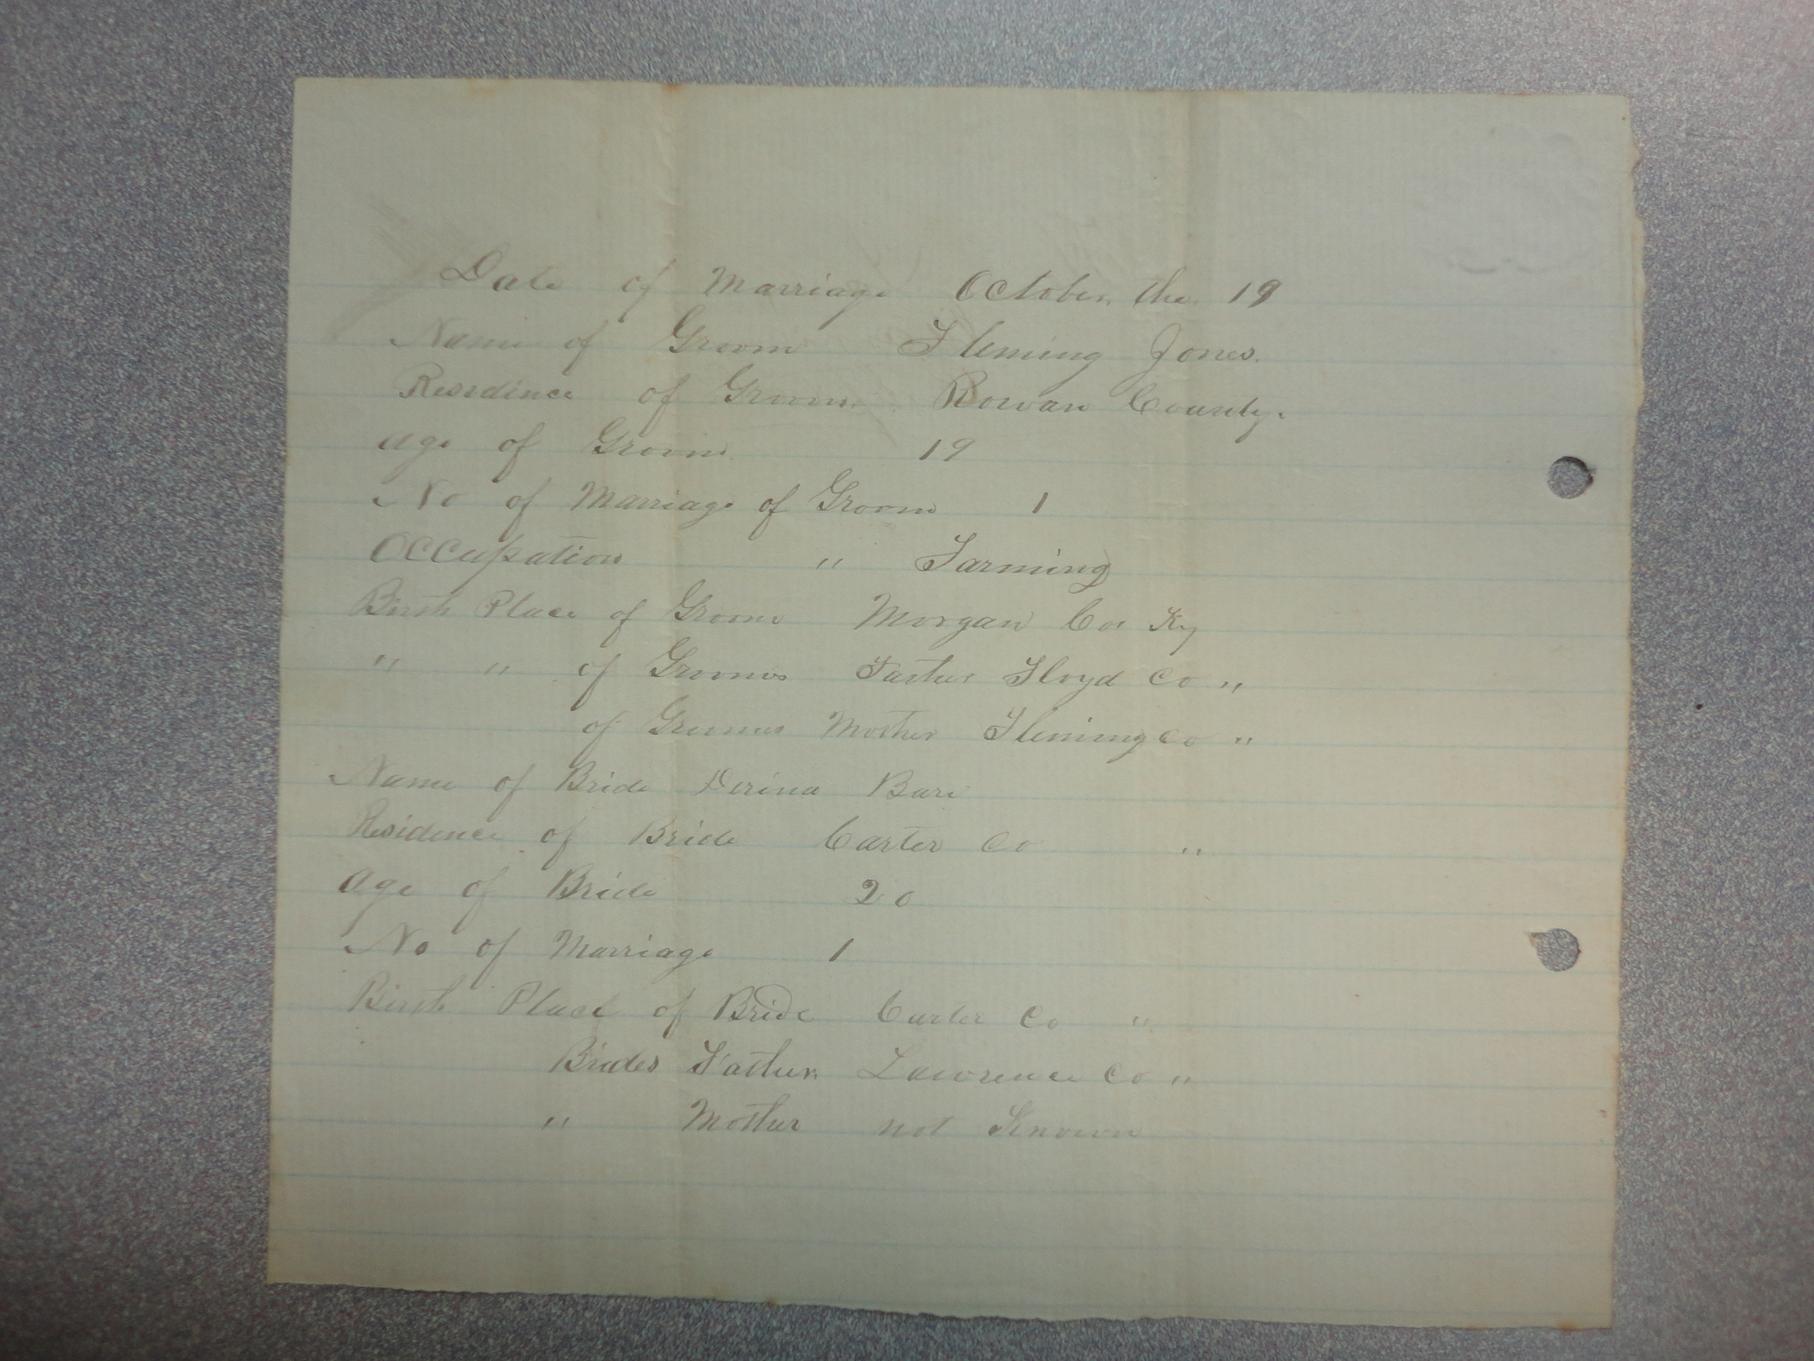 Date of Marriage October the 19
Name of Groom Fleming Jones.
Residence of Groom Rowan County.
Age of Groom 19
No of Marriage of Groom 1
Occupation " Farming
Birth Place of Groom Morgan Co Ky
" " of Grooms Father Floyd Co "
of Grooms Mother Fleming Co "
Name of Bride Bare
Residence of Bride Carter Co "
Age of Bride 20
No of Marriage 1
Birth Place of Bride Carter Co "
Brides Father Lawrence Co "
" Mother not Known